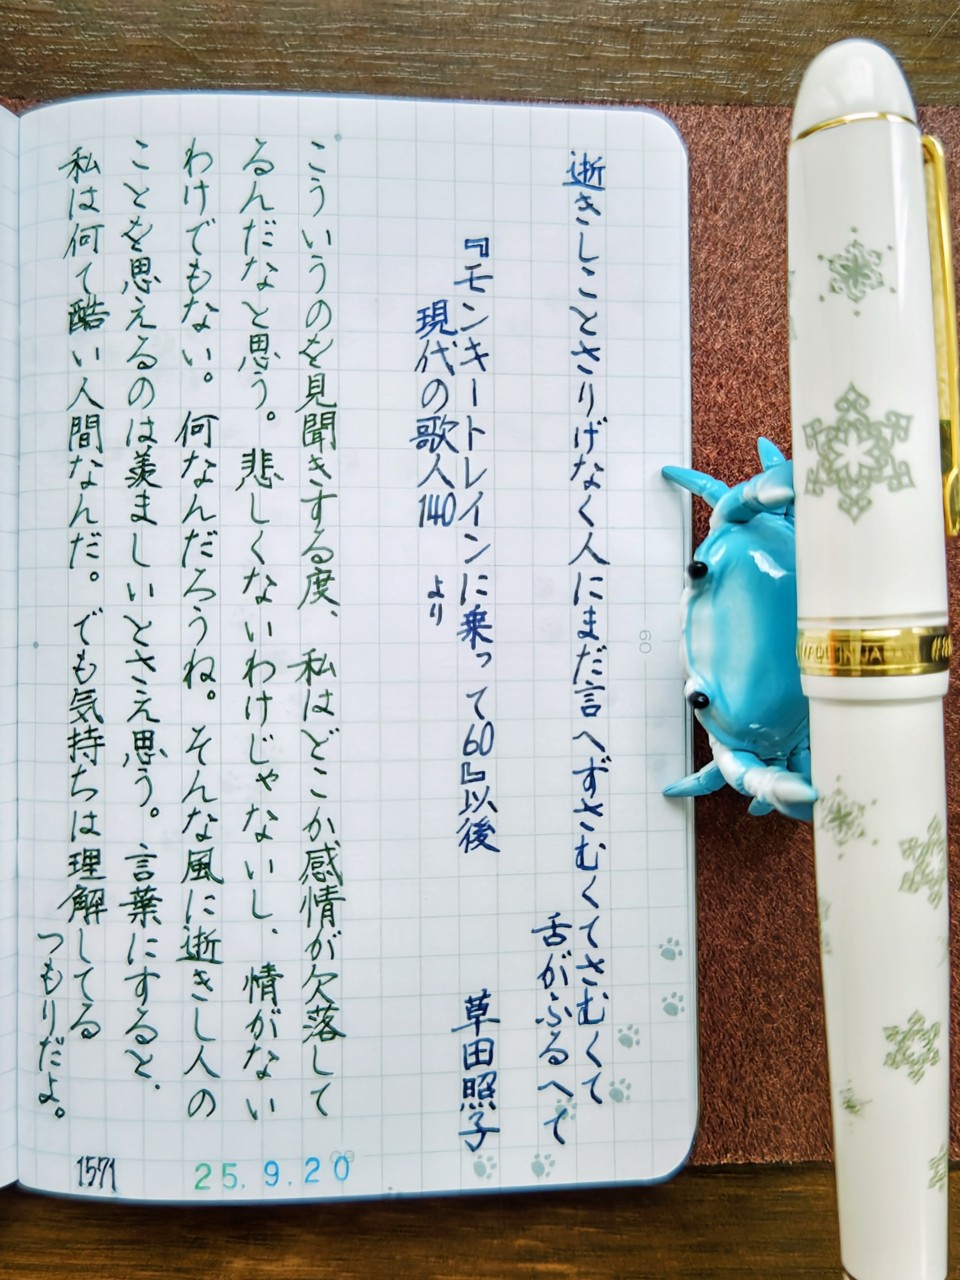 逝きしことさりげなく人にまだ言へずさむくてさむくて
舌がふるへて
『モンキートレインに乗って60』以後　草田照子
現代の歌人140
より
こういうのを見聞きする度、私はどこか感情が欠落して
るんだなと思う。悲しくないわけじゃないし、情がない
わけでもない。何なんだろうね。そんな風に逝きし人の
ことを思えるのは羨ましいとさえ思う。言葉にすると、
私は何て酷い人間なんだ。でも気持ちは理解してる
つもりだよ。
1571
25.9.20
60
MADE IN JAPAN